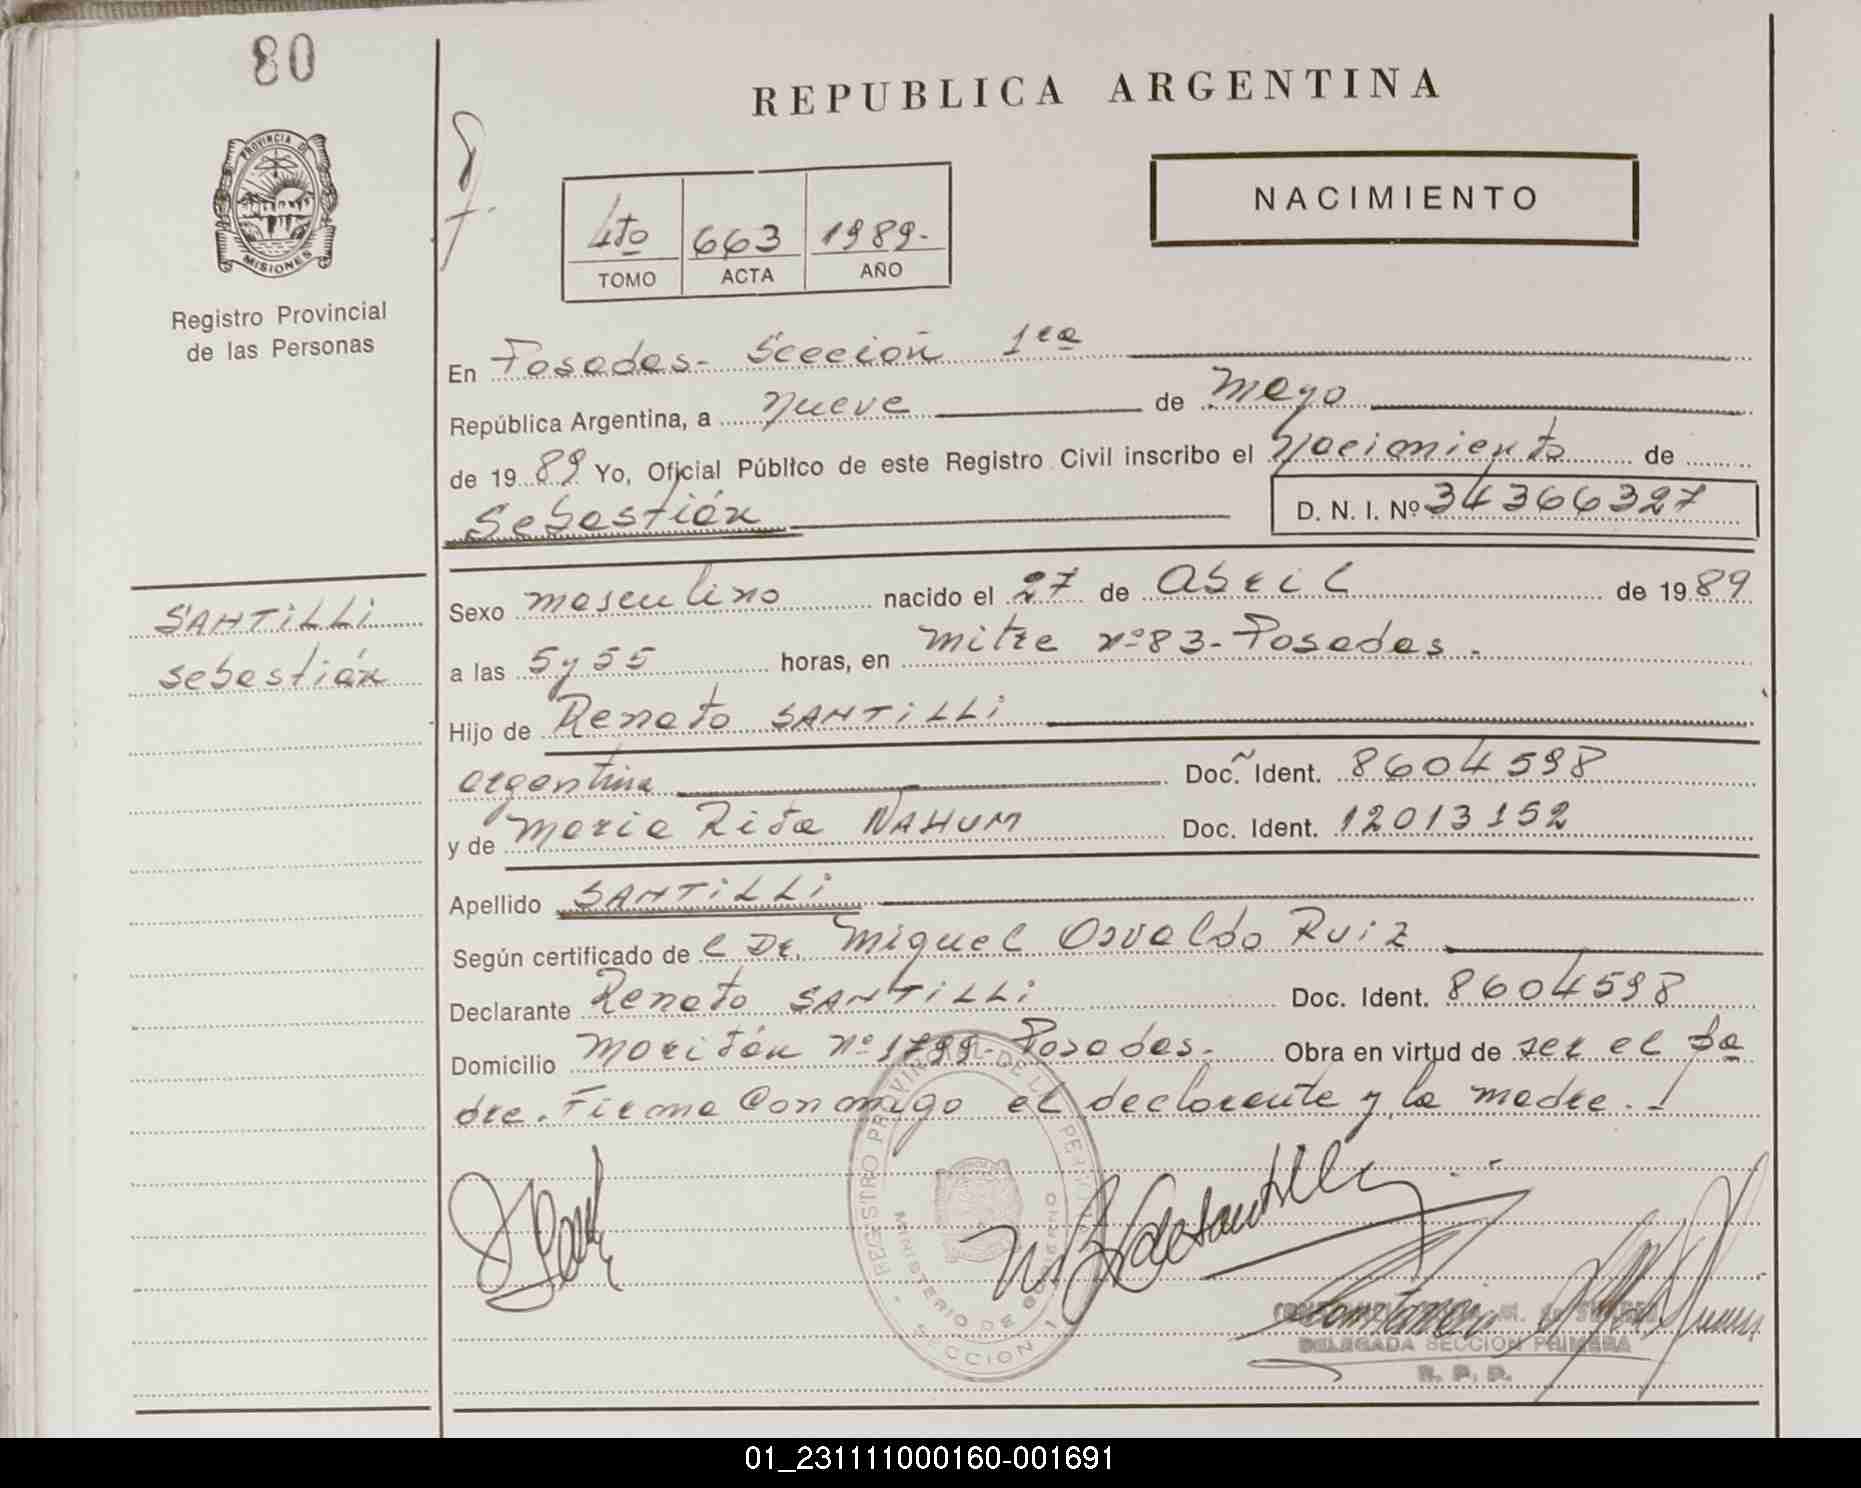 80
PROVINCIA DE
MISIONES
Registro Provincial
de las Personas
REPUBLICA ARGENTINA
NACIMIENTO
4to 663 1989.-
TOMO ACTA AÑO
En Posadas - Sección 1ra
República Argentina, a Nueve de Mayo
de 1989 Yo, Oficial Público de este Registro Civil inscribo el Nacimiento de
Sebastián
D. N. I. Nº 34366327
SANTILLI
Sebastián
Sexo masculino nacido el 27 de Abril de 1989
a las 5 y 55 horas, en Mitre nº 83 - Posadas.
Hijo de Renato SANTILLI
argentina Doc. Ident. 8604598
y de Maria Rita NAHUM Doc. Ident. 12013152
Apellido SANTILLI
Según certificado de l Dr. Miguel Osvaldo Ruiz
Declarante Renato SANTILLI Doc. Ident. 8604598
Domicilio Moritán nº 1799 - Posadas. Obra en virtud de ser el pa
dre. Firma Conmigo el declarante y la madre.-
REGISTRO PROVINCIAL DE LAS PERSONAS
MINISTERIO DE GOBIERNO
SECCION 1
de Santilli
DELEGADA SECCION PRIMERA
R. P. P.
01_231111000160-001691